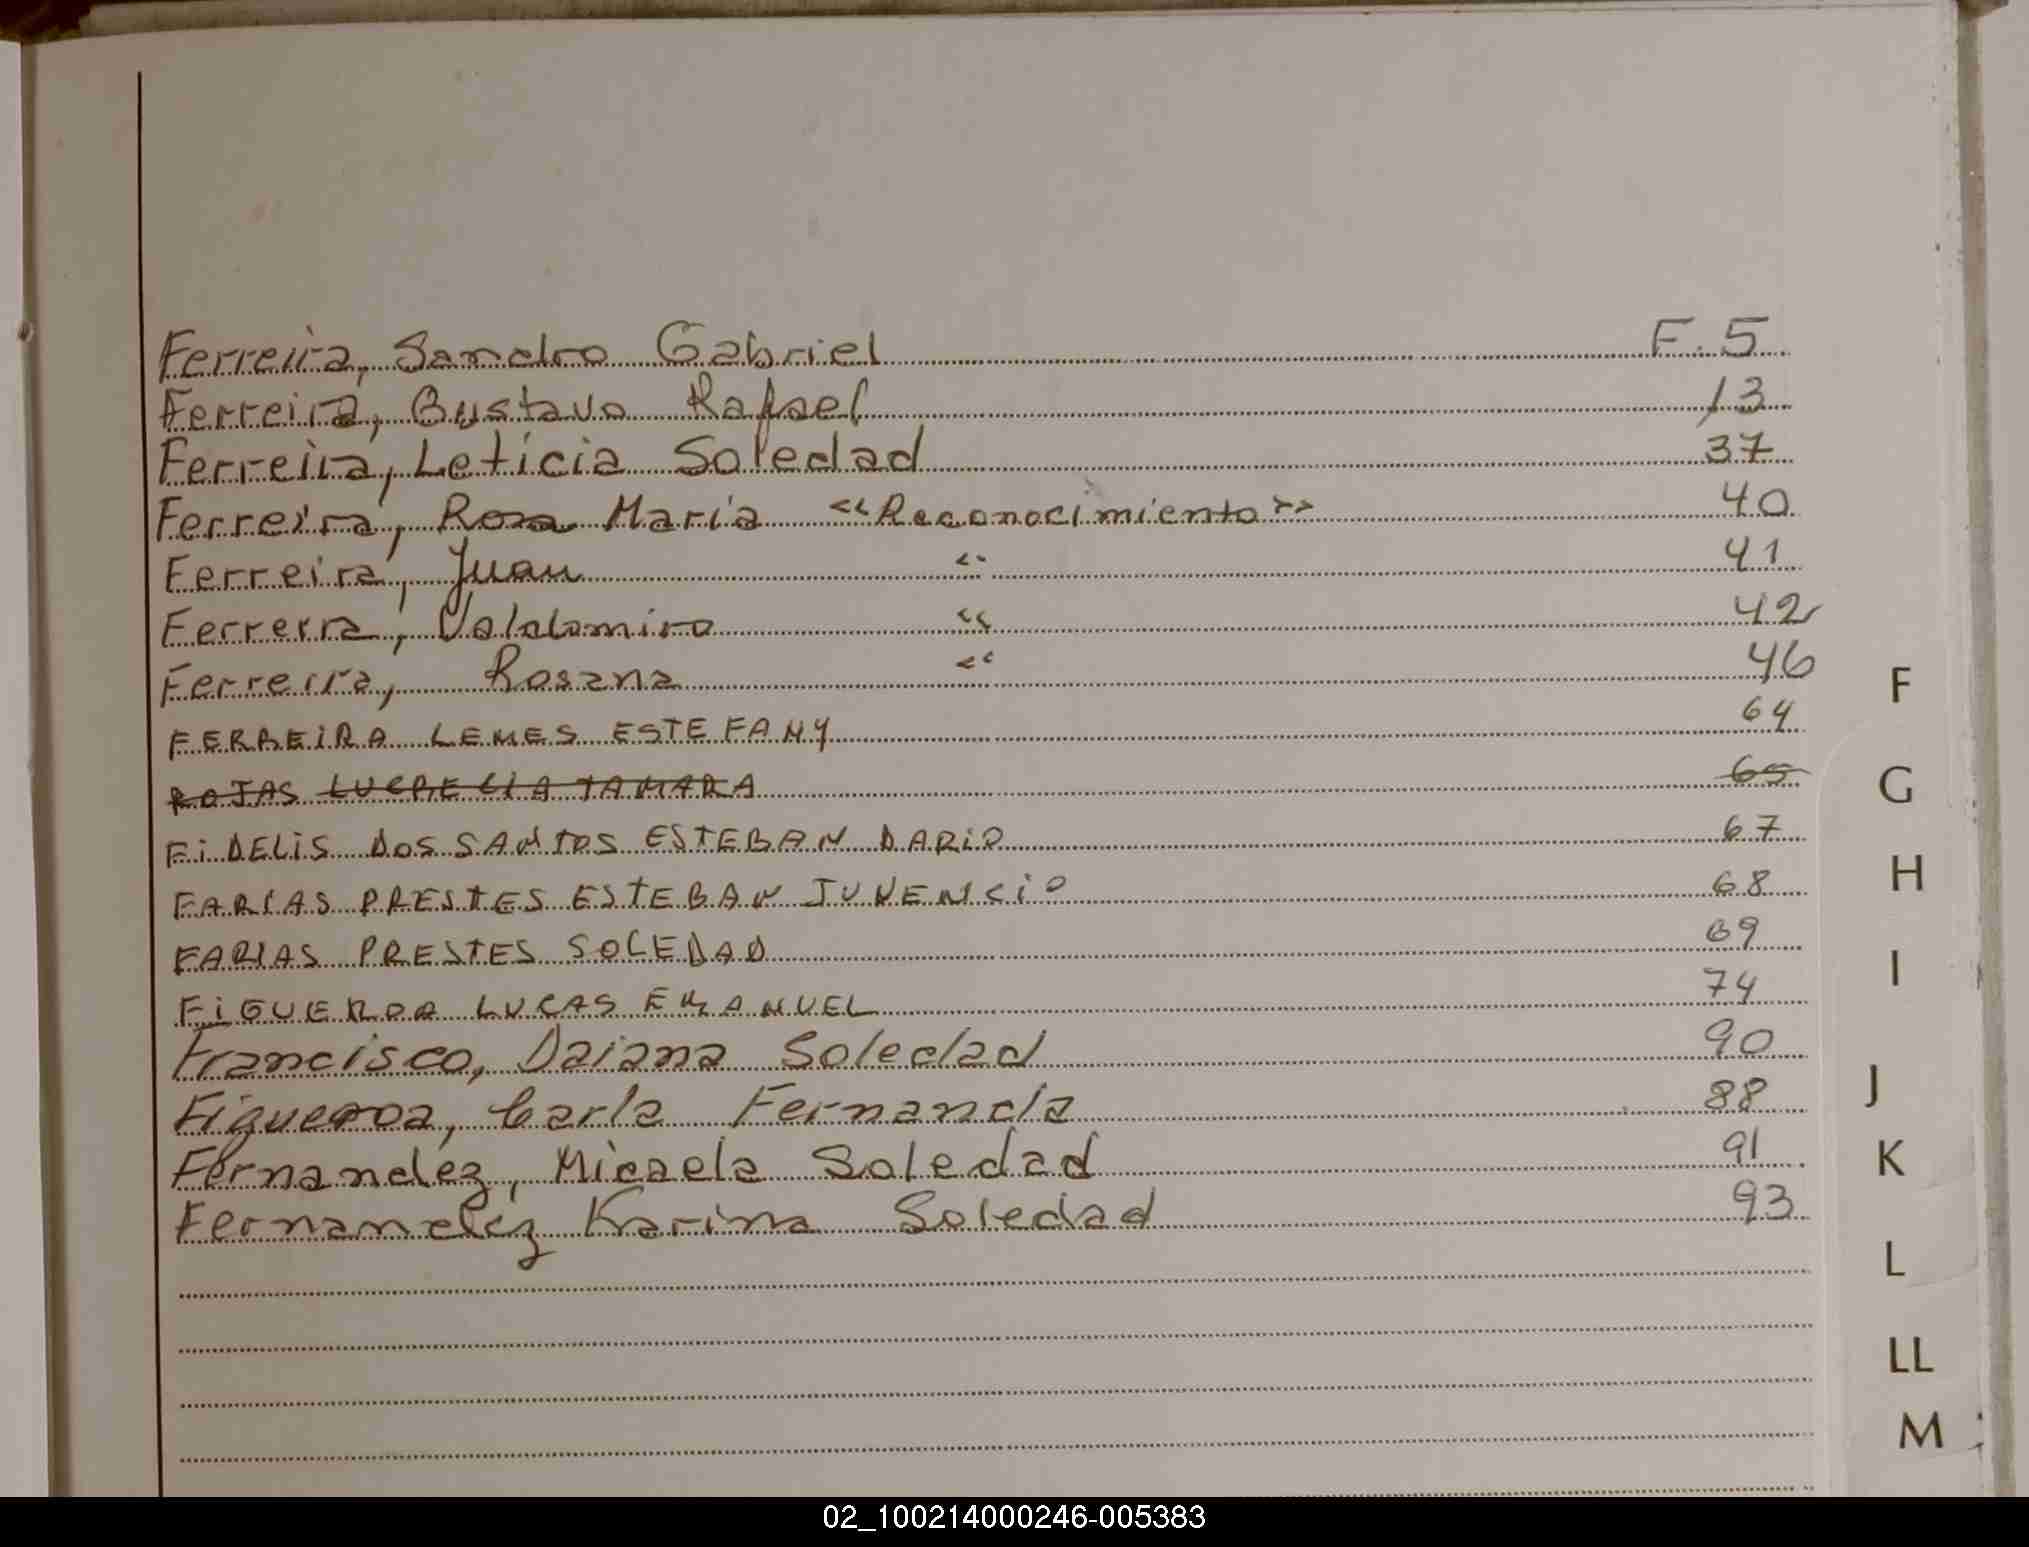 Ferreira, Sandro Gabriel F. 5
Ferreira, Gustavo Rafael 13
Ferreira, Leticia Soledad 37
Ferreira, Rosa Maria «Reconocimiento» 40
Ferreira, Juan “ 41
Ferreira, Valdomiro “ 42
Ferreira, Rosana “ 46
FERREIRA LEMES ESTEFANY 64
ROJAS LUCRECIA TAMARA 65
FiDELiS DOS SANTOS ESTEBAN DARiO 67
FARIAS PRESTES ESTEBAN JUVENCiO 68
FARIAS PRESTES SOLEDAD 69
FiGUEROA LUCAS EMANUEL 74
Francisco, Daiana Soledad 90
Figueroa, Carla Fernanda 88
Fernandez, Micaela Soledad 91
Fernandez Karina Soledad 93
F
G
H
I
J
K
L
LL
M
02_100214000246-005383